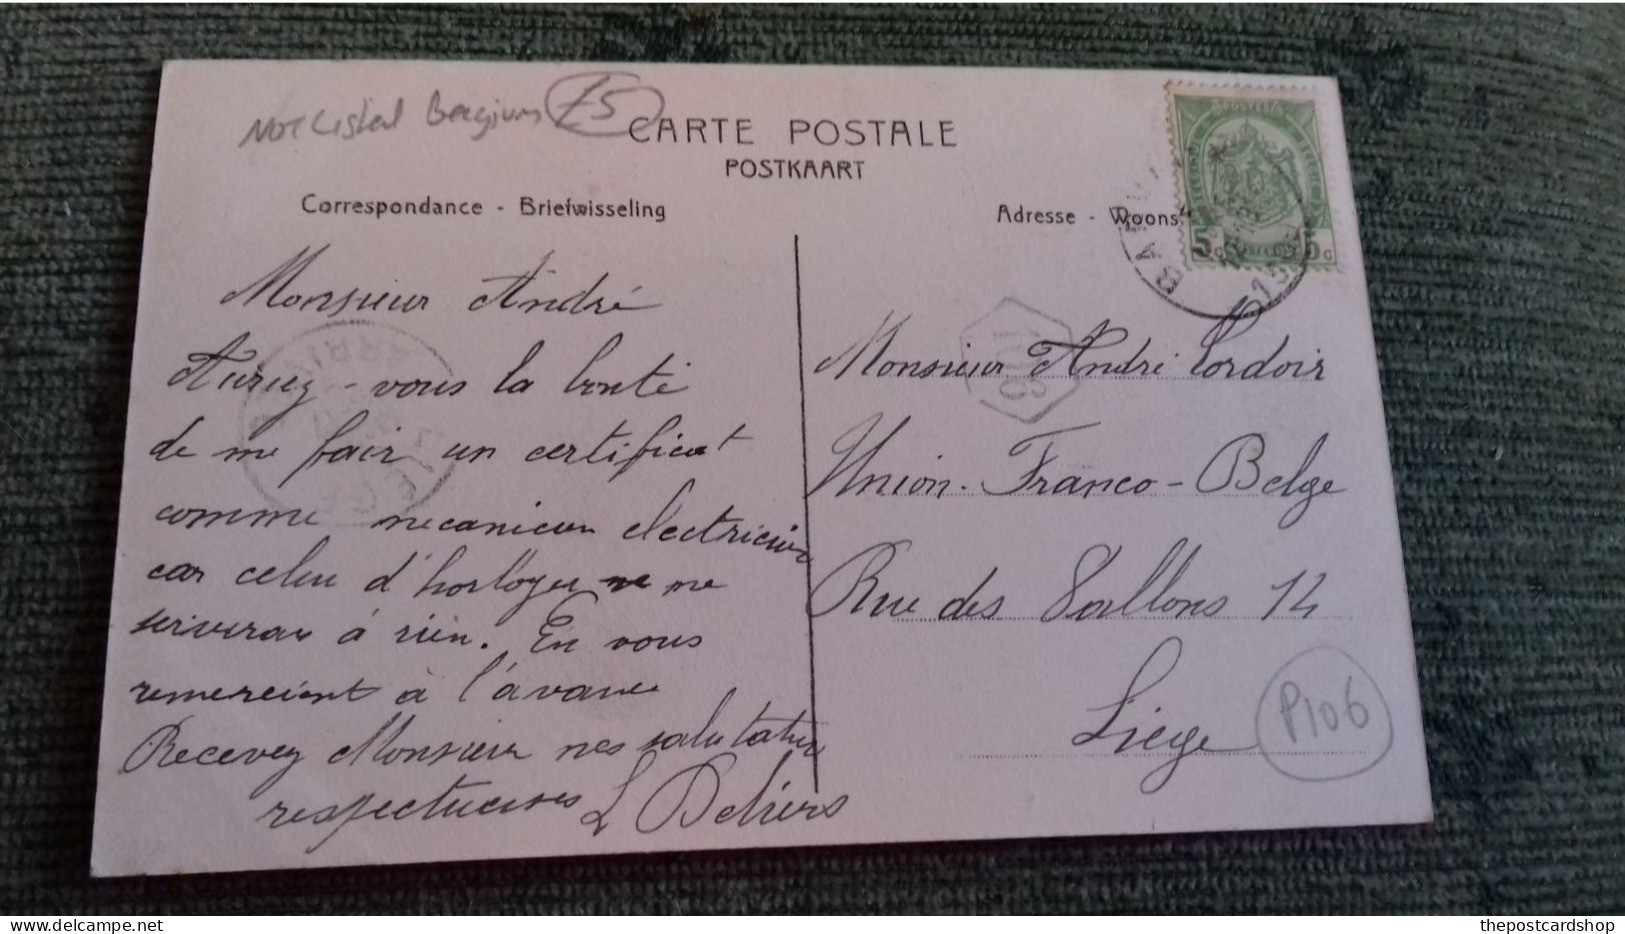 Not Listed Belgium £5
CARTE POSTALE
POSTKAART
Correspondance - Briefwisseling
Adresse - Woons
Monsieur André
Auriez-vous la bonté
de me fair un certificat
comme mecanicien electricien
car celui d'horloger ne me
serviverai à rien. En vous
remerciant à l'avance
Recevez Monsieur mes salutation
respectueuses L Beliers
Monsieur André Cordoir
Union-Franco-Belge
Rue des Vallons 14
Liège
P106
thepostcardshop